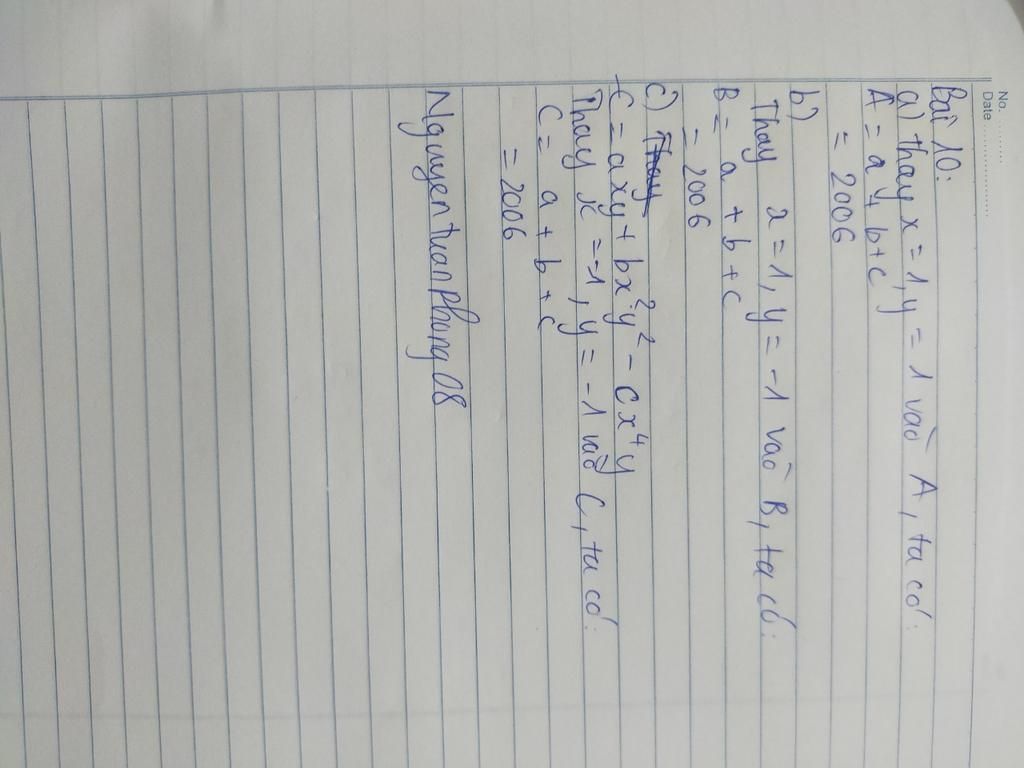 No. ........
Date ..................
Bài 10:
a) thay x = 1, y = 1 vào A, ta có:
A = a + b + c
= 2006
b)
Thay x = 1, y = -1 vào B, ta có:
B = a + b + c
= 2006
c) Thay
C = axy + bx²y² - cx⁴y
Thay x = -1, y = -1 vào C, ta có:
C = a + b + c
= 2006
Nguyen tuan Phong 08